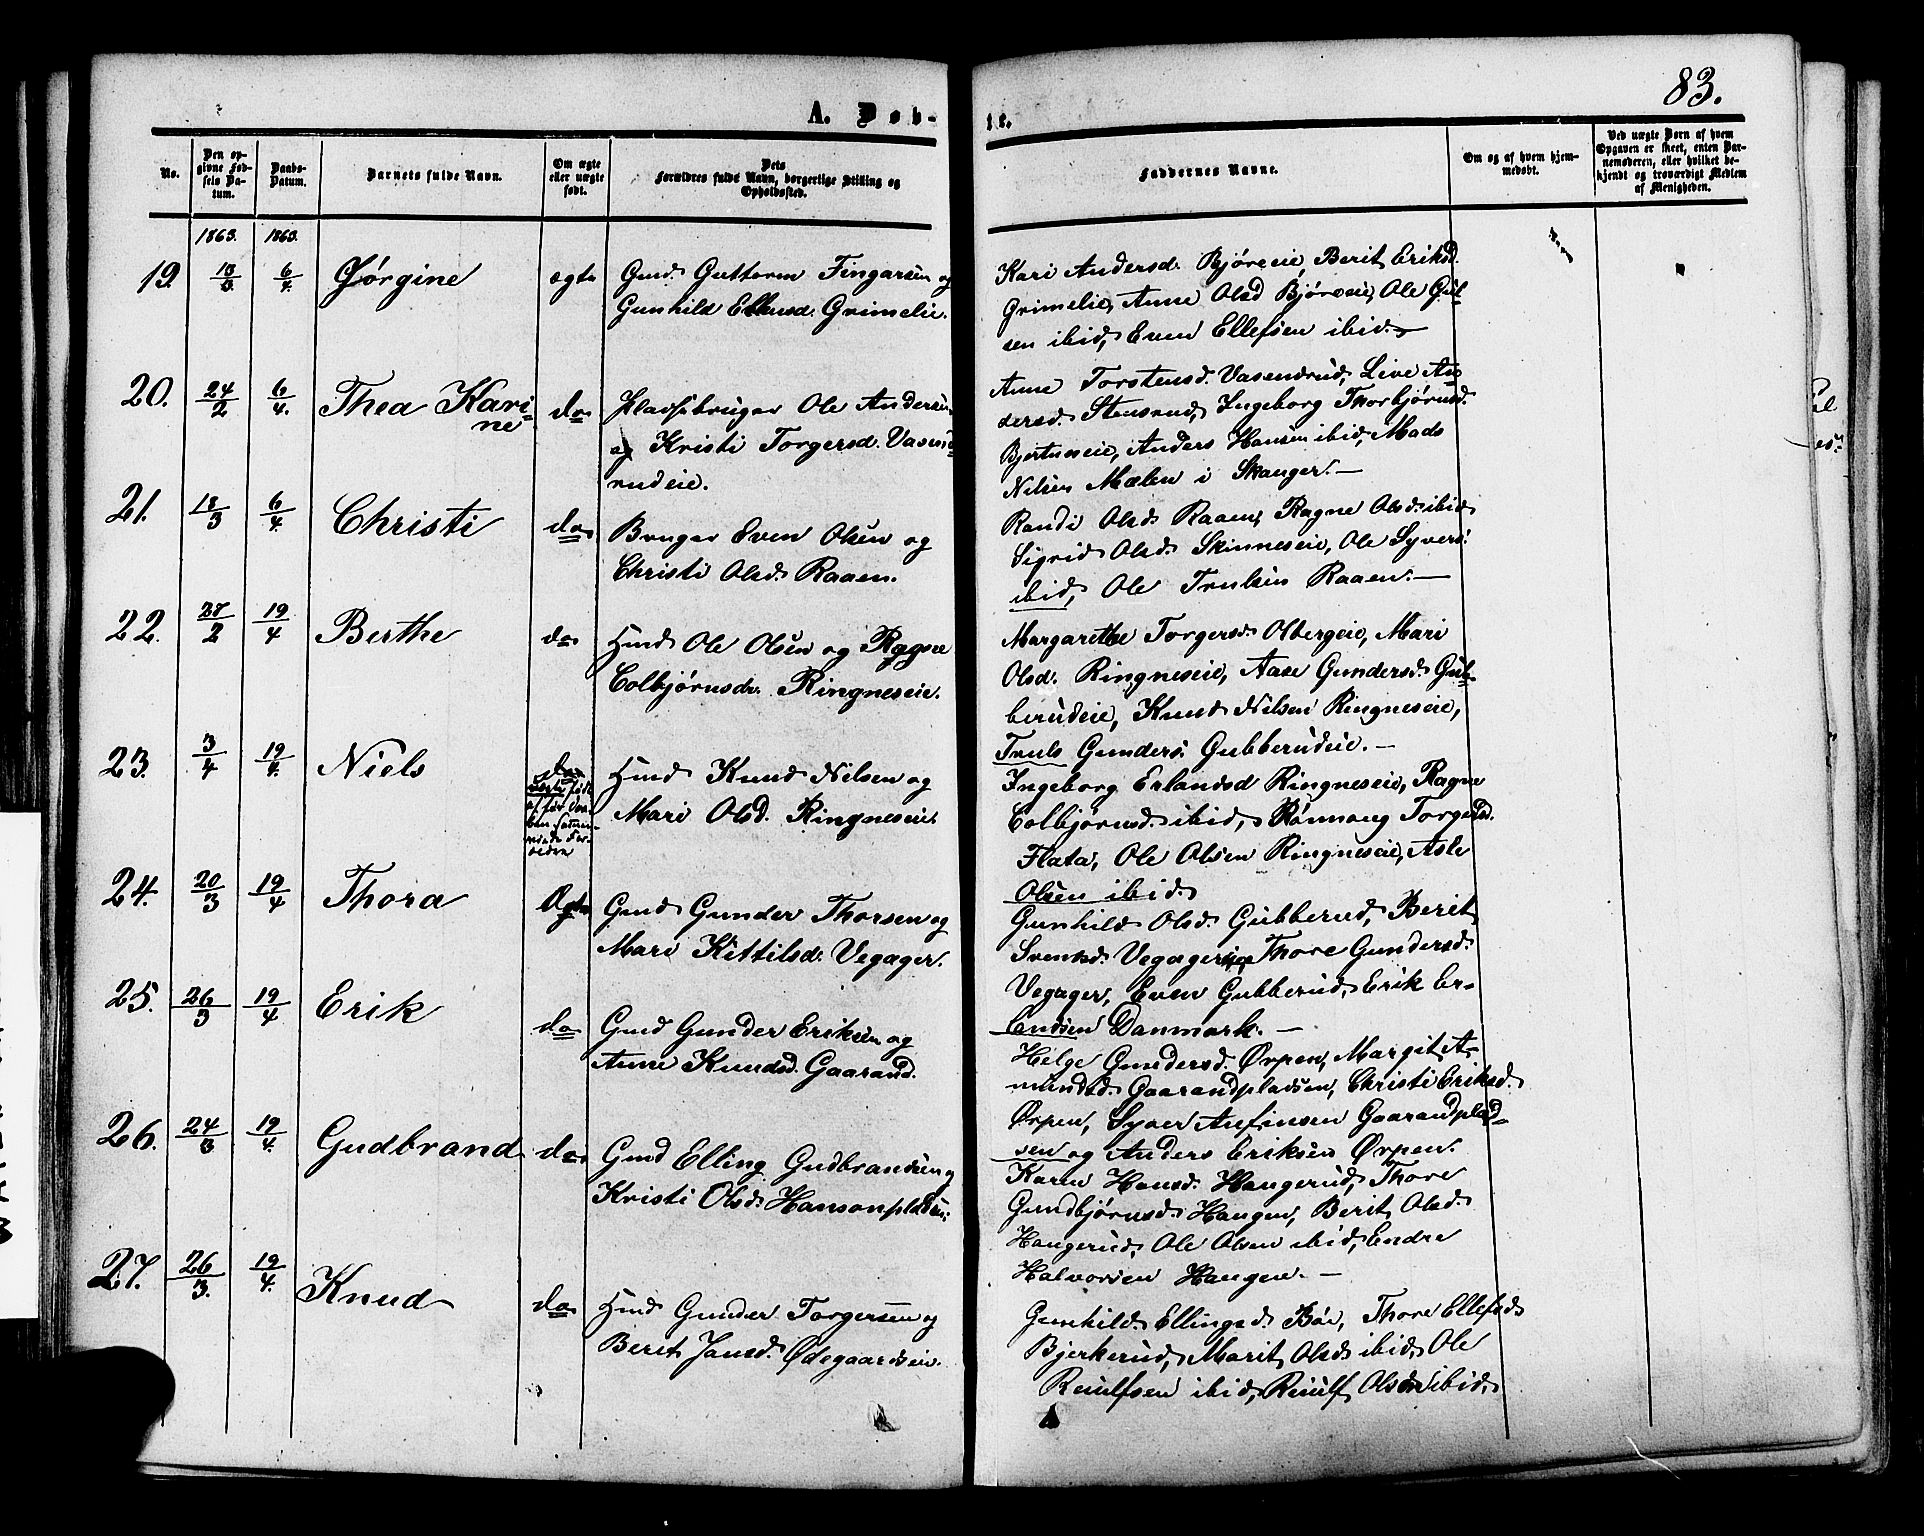 83.
A. Døb-
te.
No.
Den op-
givne Fød-
sels Da-
tum.
Daabs-
Datum.
Barnets fulde Navn.
Om ægte
eller uægte
født.
Dets
Forældres fulde Navn, borgerlige Stilling og
Opholdssted.
Faddernes Navne.
Om og af hvem hjem-
medøbt.
Ved uægte Børn af hvem
Opgaven er skeet, enten Bar-
nemoderen, eller hvilket be-
kjendt og troværdigt Medlem
af Menigheden.
1863. 1863.
19. 13/3 6/4. Jørgine ægte Gmd. Guttorm Fingarsen og
Gunhild Grimelie.
Kari Andersd. Bjøreeie, Berit Eriksd.
Grimelie, Anne Olsd Bjøreeie, Ole Gul-
sen ibid, Even Ellefsen ibid.
20. 24/2 6/4. Thea Kari-
ne do Pladsbruger Ole Andersen
og Kristi Torgersd. Vasend-
rudeie.
Anne Torstensd. Vasendrud, Live An-
dersd. Stensrud, Ingeborg Thorbjørnsd.
Bjertneseie, Anders Hansen ibid, Mads
Nilsen Mælen i Skanger.
21. 18/3 6/4. Christi do Bruger Even Olsen og
Christi Olsd. Raaen.
Randi Olsd. Raaen, Ragne Olsd. ibid
Sigrid Olsd. Skinneseie, Ole Syvers.
ibid, Ole Trulsen Raaen.
22. 27/2 19/4 Berthe do Hmd Ole Olsen og Ragne
Colbjørnsdr. Ringneseie.
Margarethe Torgersd. Olbergeie, Mari
Olsd. Ringneseie, Aase Gundersd. Gub-
berudeie, Knud Nilsen Ringneseie,
Truls Gunders. Gubberudeie.
23. 3/4 19/4. Niels do
Hmd Knud Nilsen og
Mari Olsd. Ringneseie.
Ingeborg Erlandsd Ringneseie, Ragne
Colbjørnsd. ibid, Rønnaug Torgersd.
Flata, Ole Olsen Ringneseie, Asle
Olsen ibid.
24. 20/3 19/4 Thora Ægte Gmd Gunder Thorsen og
Mari Kittilsd. Vegager.
Gunhild Olsd. Gubberud, Berit
Svensd. Vegager, Thore Gundersd.
Vegager, Even Gubberud, Erik Er-
landsen Danmark.
25. 26/3 19/4 Erik do Gmd Gunder Eriksen og
Anne Knudsd. Gaarand.
Helge Gundersd. Ørpen, Margit A-
mundsd. Gaarandpladsen, Christi Eriksd.
Ørpen, Syver Anfinsen Gaarandplad-
sen og Anders Eriksen Ørpen.
26. 24/3 19/4. Gudbrand do Gmd Elling Gudbrandsen og
Kristi Olsd. Hansonpladsen.
Karen Hansd. Haugerud, Thore
Gundbjørnsd. Haugen, Berit Olsd.
Haugerud, Ole Olsen ibid, Endre
Halvorsen Haugen.
27. 26/3. 19/4. Knud do Hmd Gunder Torgersen og
Berit Jansd. Ødegaardseie.
Gunhild Ellingsd. Bøe, Thore Ellefsd
Bjerkerud, Marit Olsd ibid, Ole
Reiulfsen ibid, Reiulf Olsen ibid.